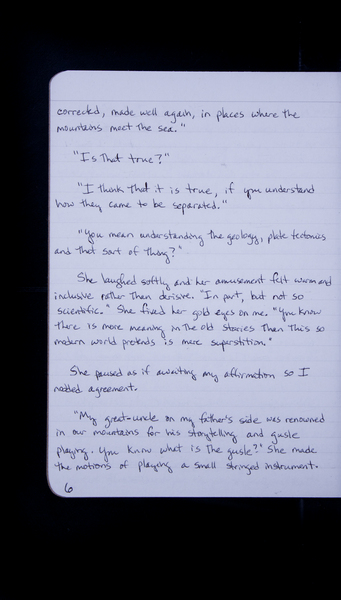 corrected, made well again, in places where the
mountains meet the sea."
"Is that true?"
"I think that it is true, if you understand
how they came to be separated."
"You mean understanding the geology, plate tectonics
and that sort of thing?"
She laughed softly and her amusement felt warm and
inclusive rather than derisive. "In part, but not so
scientific." She fixed her gold eyes on me. "You know
there is more meaning in the old stories than this so
modern world pretends is mere superstition."
She paused as if awaiting my affirmation so I
nodded agreement.
"My great-uncle on my father's side was renowned
in our mountains for his storytelling and gusle
playing. You know what is the gusle?" She made
the motions of playing a small stringed instrument.
6